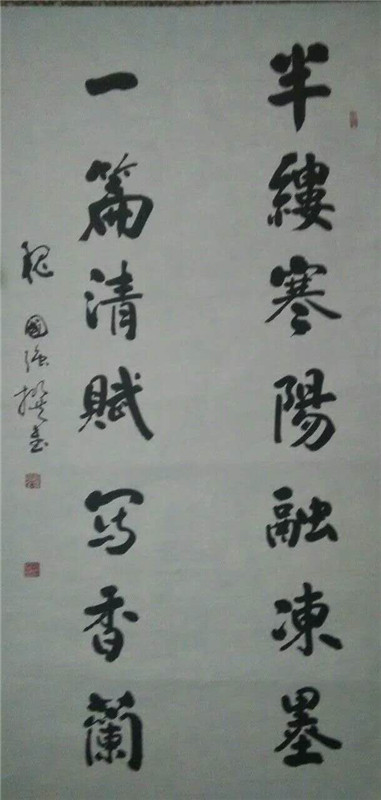 半縷寒陽融凍墨
一篇清賦寫香蘭
國強撰書